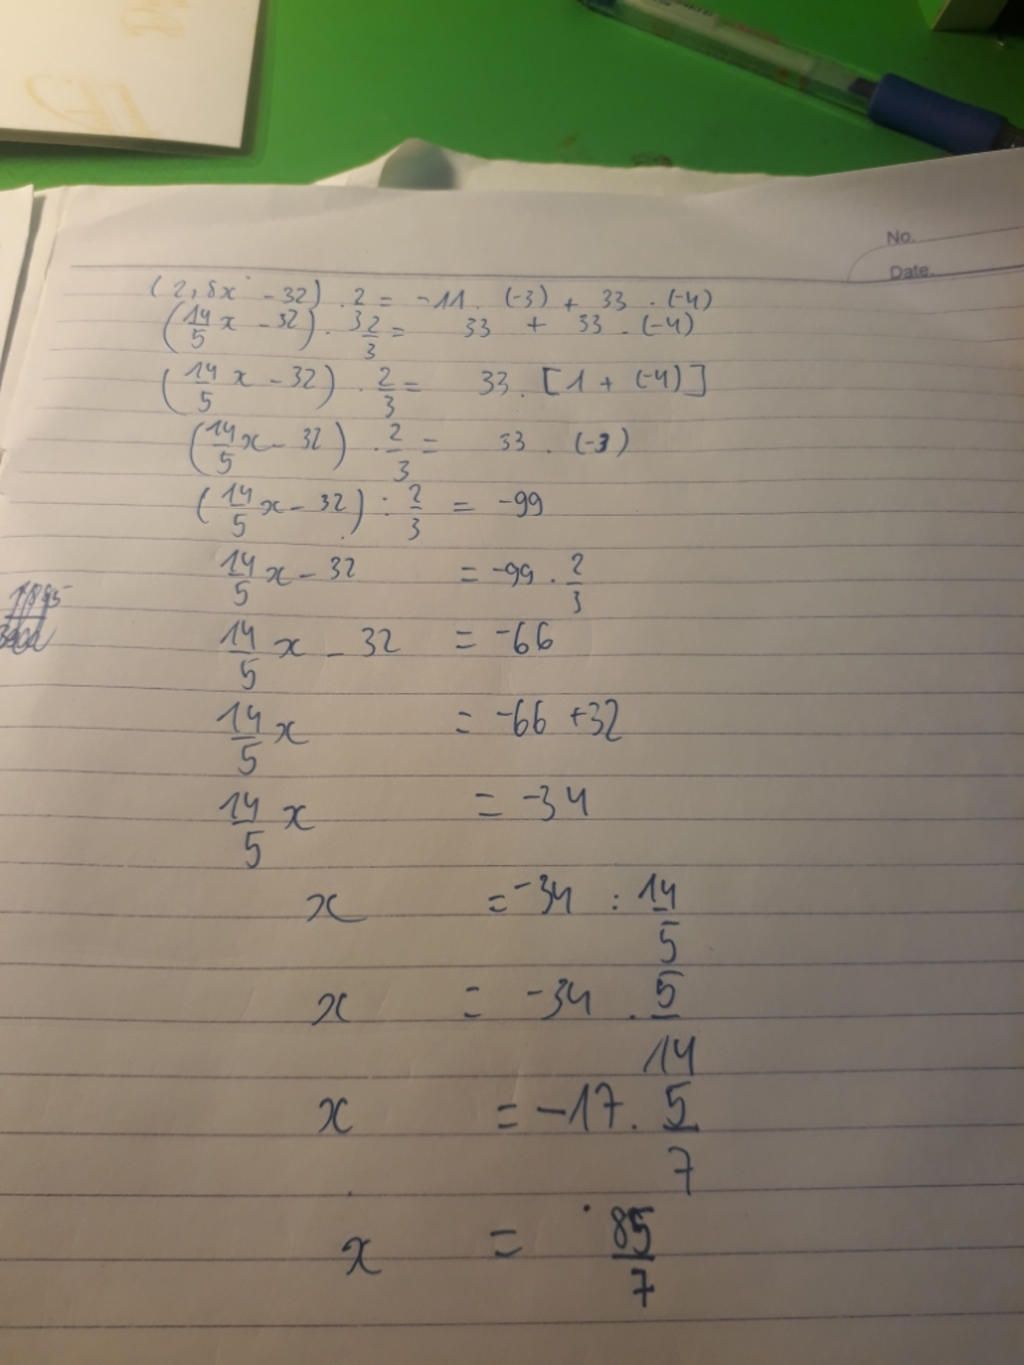 No.
Date.
(2,8x - 32) . 2 = -11 . (-3) + 33 . (-4)
(14/5 x - 32) . 3 2/3 = 33 + 33 . (-4)
(14/5 x - 32) . 2/3 = 33 . [1 + (-4)]
(14/5 x - 32) . 2/3 = 33 . (-3)
(14/5 x - 32) : 2/3 = -99
14/5 x - 32 = -99 . 2/3
14/5 x - 32 = -66
14/5 x = -66 + 32
14/5 x = -34
x = -34 : 14/5
x = -34 . 5/14
x = -17 . 5/7
x = 85/7